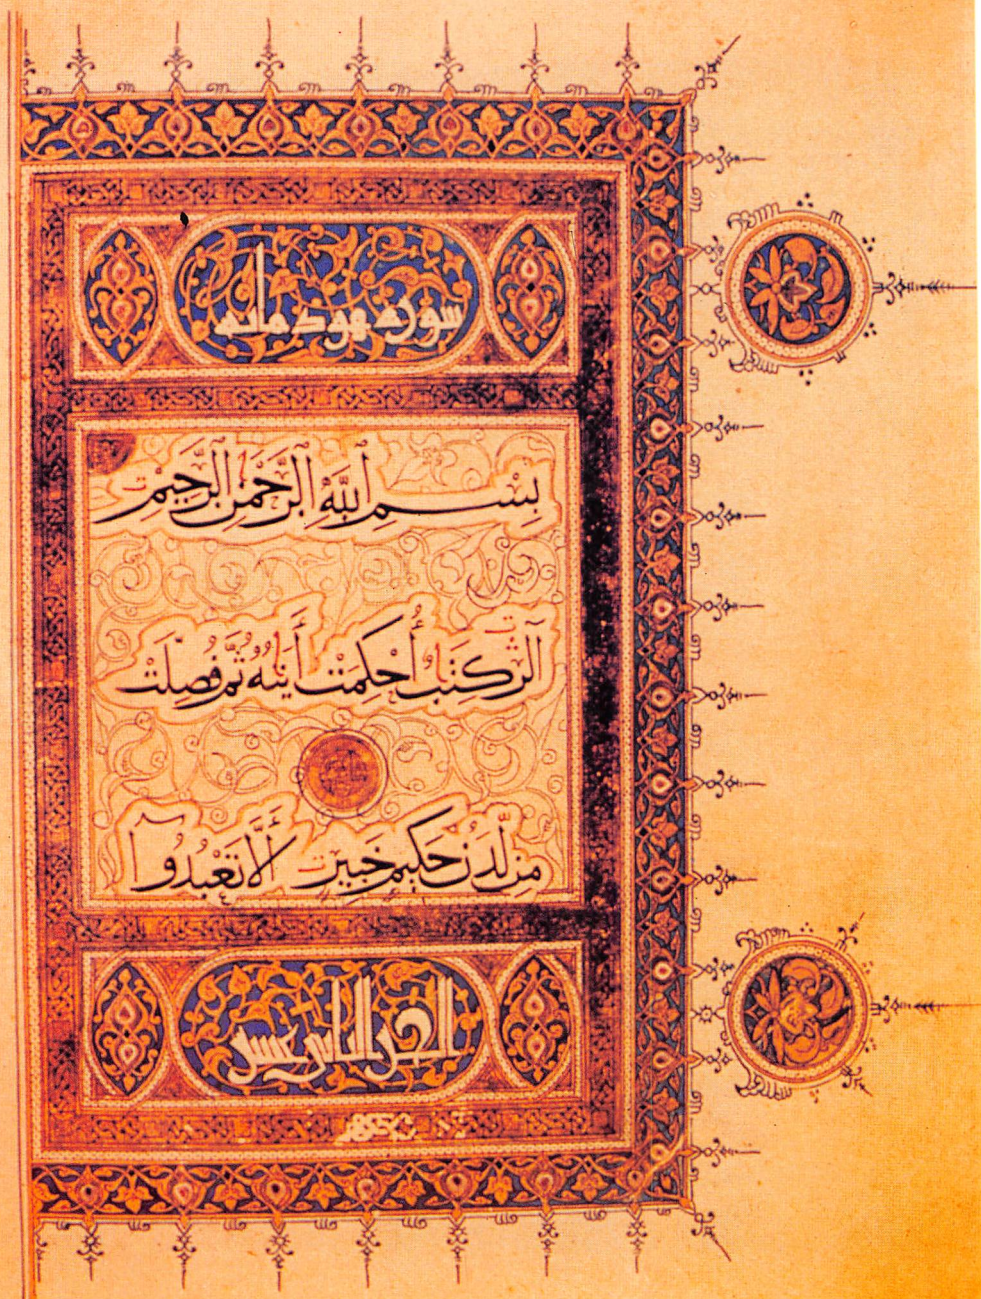 سورة هود مائه
بِسْمِ ٱللَّهِ ٱلرَّحْمَٰنِ ٱلرَّحِيمِ
الٓر كِتَٰبٌ أُحْكِمَتْ ءَايَٰتُهُۥ ثُمَّ فُصِّلَتْ
مِن لَّدُنْ حَكِيمٍ خَبِيرٍ أَلَّا تَعْبُدُوٓا۟